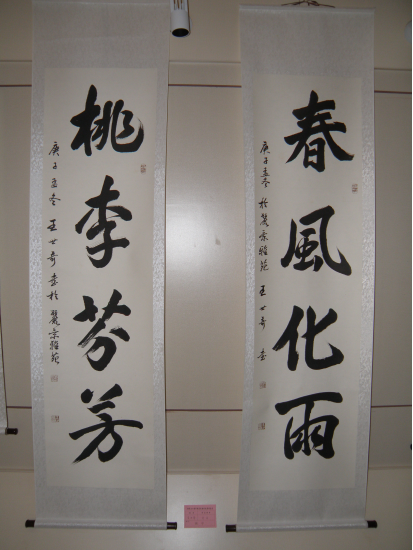 春風化雨
庚子孟冬於麗京雅苑王世奇書
桃李芬芳
庚子孟冬王世奇書於麗京雅苑